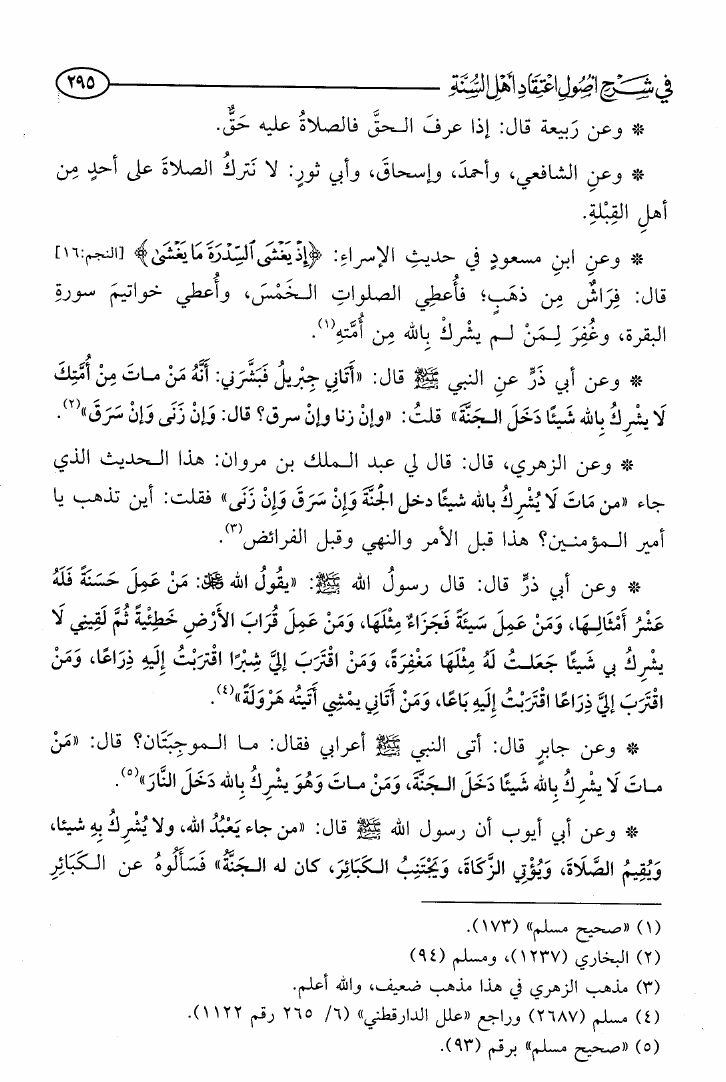 في شرح أصول اعتقاد أهل السنة ٢٩٥
* وعن رَبيعة قال: إذا عرفَ الـحقَّ فالصلاةُ عليه حَقٌّ.
* وعنِ الشافعي، وأحمدَ، وإسحاقَ، وأبي ثورٍ: لا نَتركُ الصلاةَ على أحدٍ مِن
أهلِ القِبْلةِ.
* وعنِ ابنِ مسعودٍ في حديثِ الإسراءِ: ﴿إِذْ يَغْشَى ٱلسِّدْرَةَ مَا يَغْشَىٰ﴾ [النجم:١٦]
قال: فِرَاشٌ مِن ذهَبٍ؛ فأُعطِي الصلواتِ الـخَمْسَ، وأُعطي خواتيمَ سورةِ
البقرة، وغُفِرَ لِـمَنْ لـم يشركْ بِالله مِن أُمَّتهِ(١).
* وعن أبي ذَرٍّ عنِ النبي ﷺ قال: «أَتَاني جِبْريلُ فَبَشَّرَني: أَنَّهُ مَنْ مـاتَ مِنْ أُمَّتِكَ
لَا يشْرِكُ بِالله شَيئًا دَخَلَ الـجَنَّةَ» قلتُ: «وإنْ زنا وإنْ سرق؟ قال: وَإنْ زَنَى وَإنْ سَرَقَ»(٢).
* وعن الزهري، قال: قال لي عبد الـملك بن مروان: هذا الـحديث الذي
جاء «من مَاتَ لَا يُشْرِكُ بالله شيئًا دخل الجَنَّةَ وَإنْ سَرَقَ وَإنْ زَنَى» فقلت: أين تذهب يا
أمير الـمؤمنـين؟ هذا قبل الأمر والنهي وقبل الفرائض(٣).
* وعن أبي ذرٍّ قال: قال رسولُ الله ﷺ: «يقُولُ الله ﷻ: مَنْ عَمِلَ حَسَنَةً فَلَهُ
عَشْرُ أَمْثَالِـهَا، وَمَنْ عَمِلَ سَيئَةً فَجَزَاءٌ مِثْلَهَا، وَمَنْ عَمِلَ قُرَابَ الأَرْضِ خَطْيْئَةً ثُمَّ لَقِيَنِي لَا
يشْرِكُ بي شَيئًا جَعَلتُ لَهُ مِثْلَهَا مَغْفِرَةً، وَمَنْ اقْتَرَبَ إليَّ شِبْرًا اقْتَرَبْتُ إلَيهِ ذِرَاعًا، وَمَنْ
اقْتَرَبَ إليَّ ذِرَاعًا اقْتَرَبْتُ إلَيهِ بَاعًا، وَمَنْ أَتَاني يمْشِي أَتَيتُه هَرْوَلَةً»(٤).
* وعن جابرٍ قال: أتى النبي ﷺ أعرابي فقال: مـا الـموجبَتَان؟ قال: «مَنْ
مـاتَ لَا يشْرِكُ بِالله شَيئًا دَخَلَ الـجَنَّةَ، وَمَنْ مـاتَ وَهُوَ يشْرِكُ بِالله دَخَلَ النَّارَ»(٥).
* وعن أبي أيوب أن رسول الله ﷺ قال: «من جاء يَعْبُدُ الله، ولا يُشْرِكُ بِهِ شيئا،
وَيُقِيمُ الصَّلَاةَ، وَيُؤْتِي الزَّكَاةَ، وَيَجْتَنِبُ الـكَبَائِرَ، كان له الـجَنَّةُ» فَسَأَلُوهُ عن الـكَبَائِرِ
(١) «صحيح مسلم» (١٧٣).
(٢) البخاري (١٢٣٧)، ومسلم (٩٤)
(٣) مذهب الزهري في هذا مذهب ضعيف، والله أعلم.
(٤) مسلم (٢٦٨٧) وراجع «علل الدارقطني» (٦/ ٢٦٥ رقم ١١٢٢).
(٥) «صحيح مسلم» برقم (٩٣).